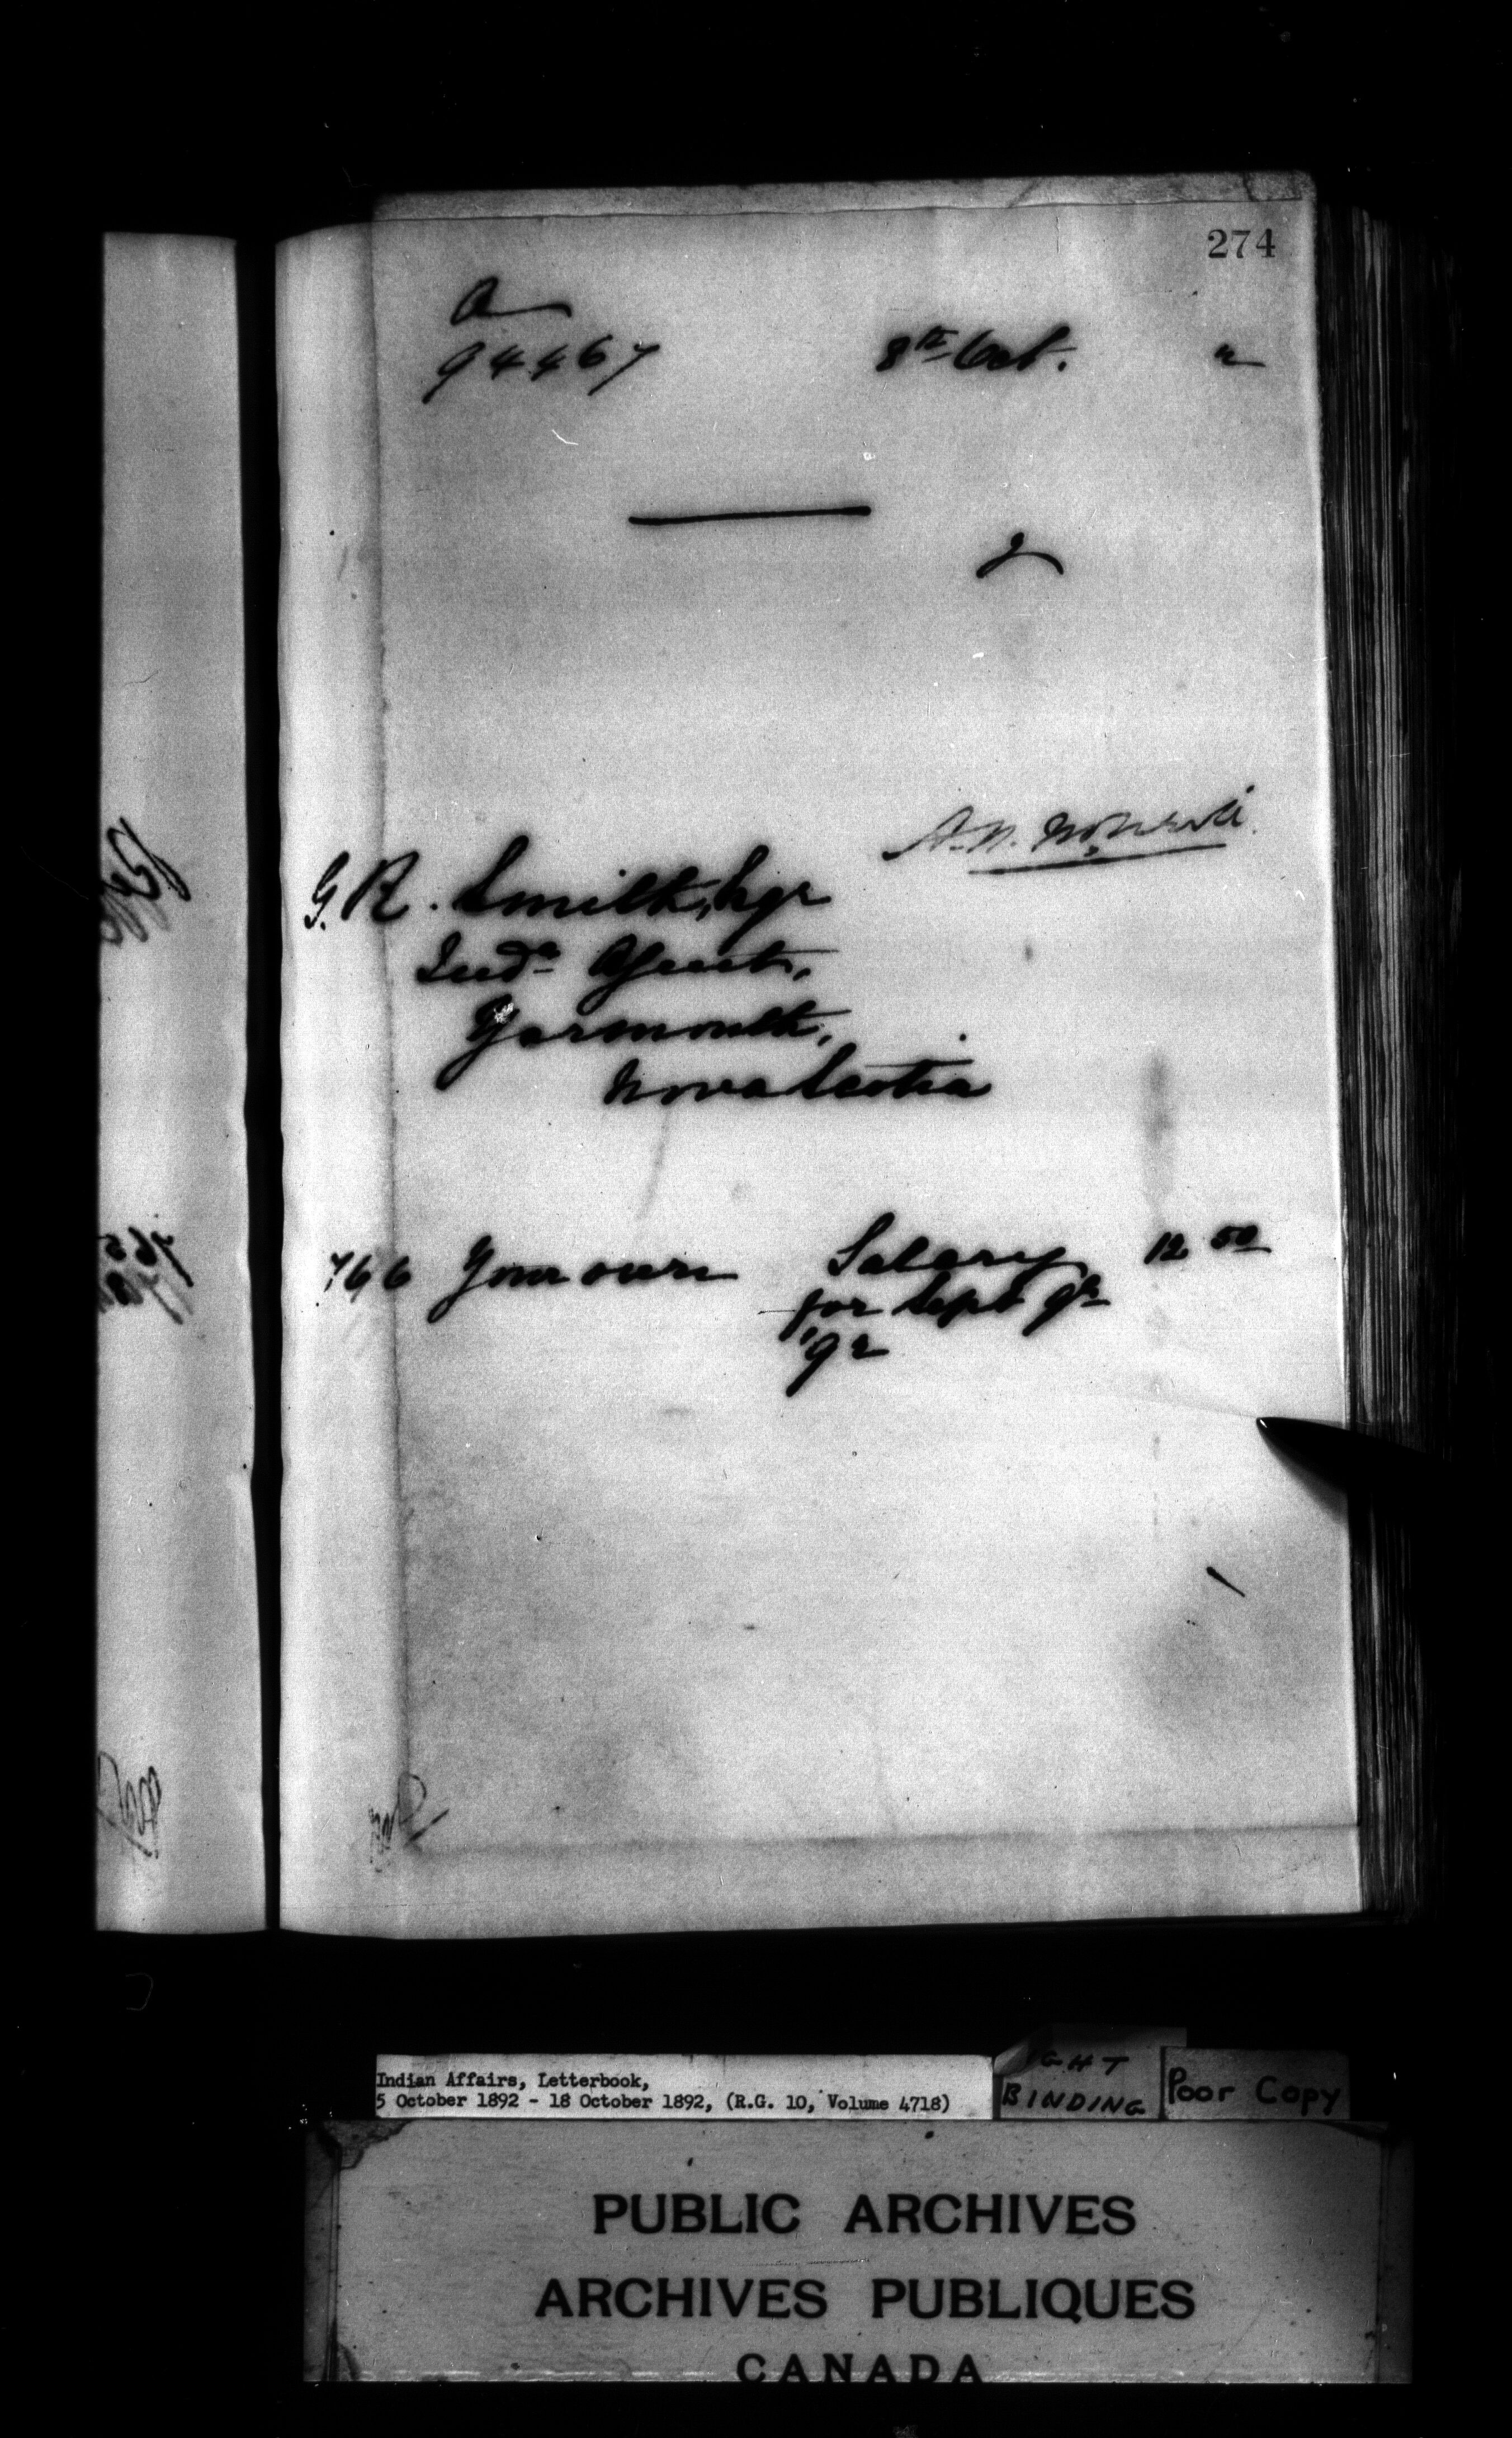 274
a
94467 8th Oct. 2
G. R. Smith, Esqr
Indn Agent,
Yarmouth,
Nova Scotia
766 Your own Salary 12 50
for Sept qr
'92
Indian Affairs, Letterbook,
5 October 1892 - 18 October 1892, (R.G. 10, Volume 4718)
GHT
BINDING
Poor Copy
PUBLIC ARCHIVES
ARCHIVES PUBLIQUES
CANADA